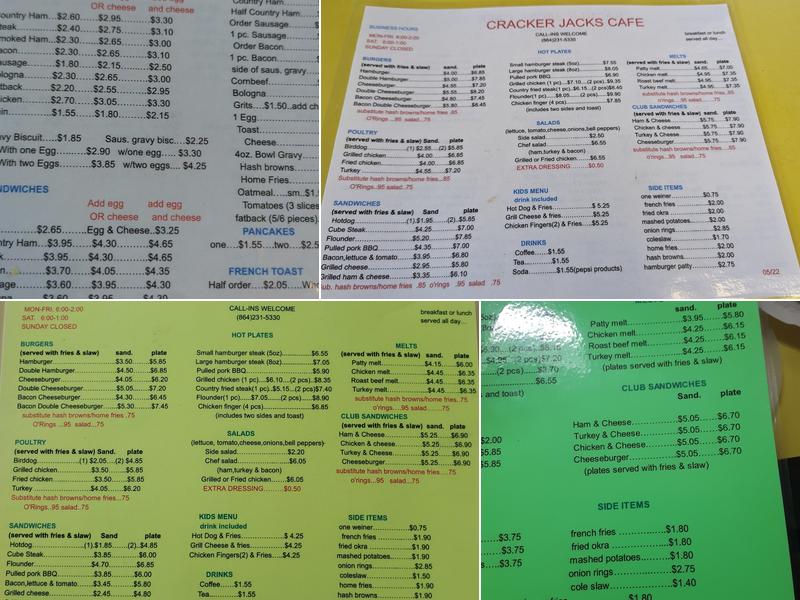 OR cheese and cheese
ountry Ham...$2.60 $2.95 $3.30
eak $2.40 $2.75 $3.10
moked Ham...$2.30 $2.65 $3.00
acon $2.30 $2.65 $3.10
ausage $1.80 $2.15 $2.55
ologna $2.30 $2.65 $3.00
tback $2.20 $2.55 $2.95
icken $2.70 $3.05 $3.30
in $1.55 $1.80 $2.15
avy Biscuit...$1.85 Saus. gravy bisc...$2.25
With one Egg $2.90 w/one egg $3.30
With two Eggs $3.85 w/two eggs $4.25
NDWICHES
Add egg add egg
OR cheese and cheese
$2.65 Egg & Cheese...$3.25
ntry Ham...$3.95 $4.30 $4.65
k $3.95 $4.30 $4.65
$3.70 $4.05 $4.35
age $3.60 $3.95 $4.30
Country Ham
Half Country Ham
Order Sausage
1 pc. Sausage
Order Bacon
1 pc. Bacon
side of saus. gravy
Combeef
Bologna
Grits....$1.50..add ch
1 Egg
Toast
Cheese
4oz. Bowl Gravy
Hash browns
Home Fries
Oatmeal.....sm..$1.
Tomatoes (3 slices
fatback (5/6 pieces)
PANCAKES
one....$1.55...two....$2.5
FRENCH TOAST
Half order....$2.05
CRACKER JACKS CAFE
BUSINESS HOURS
MON-FRI. 6:00-2:00
SAT. 6:00-1:00
SUNDAY CLOSED
CALL-INS WELCOME
(864)231-5330
breakfast or lunch
served all day....
BURGERS
(served with fries & slaw) sand. plate
Hamburger $4.00 $6.85
Double Hamburger $5.00 $7.85
Cheeseburger $4.55 $7.20
Double Cheeseburger $5.55 $8.20
Bacon Cheeseburger $4.80 $7.45
Bacon Double Cheeseburger $5.80 $8.45
substitute hash browns/home fries .85
O'Rings ...95 salad...75
POULTRY
(served with fries & slaw) Sand plate
Birddog (1) $2.55 ...(2) $5.85
Grilled chicken $4.00 $6.85
Fried chicken $4.00 $6.85
Turkey $4.55 $7.20
Substitute hash browns/home fries...85
O'Rings..95 salad..75
SANDWICHES
(served with fries & slaw) Sand plate
Hotdog (1).$1.95 ...(2)..$5.85
Cube Steak $4.25 $7.00
Flounder $5.20 $7.85
Pulled pork BBQ $4.35 $7.00
Bacon,lettuce & tomato $3.95 $6.80
Grilled cheese $2.95 $5.80
Grilled ham & cheese $3.35 $6.10
sub. hash browns/home fries .85 o'rings .95 salad .75
HOT PLATES
Small hamburger steak (5oz) $7.55
Large hamburger steak (8oz) $8.05
Pulled pork BBQ $6.90
Grilled chicken (1 pc)....$7.10....(2 pcs) $9.35
Country fried steak(1 pc)...$6.15..(2 pcs)$8.40
Flounder(1 pc)......$8.05......(2 pcs)..$9.90
Chicken finger (4 pcs) $7.85
(includes two sides and toast)
SALADS
(lettuce, tomato,cheese,onions,bell peppers)
Side salad $2.50
Chef salad $6.55
(ham,turkey & bacon)
Grilled or Fried chicken $6.55
EXTRA DRESSING $0.50
KIDS MENU
drink included
Hot Dog & Fries $ 5.25
Grill Cheese & fries $5.25
Chicken Fingers(2) & Fries $5.25
DRINKS
Coffee $1.55
Tea $1.55
Soda $1.55(pepsi products)
MELTS
(served with fries & slaw) sand. plate
Patty melt $4.65 $7.00
Chicken melt $4.95 $7.35
Roast beef melt $4.95 $7.35
Turkey melt $4.95 $7.35
substitute hash browns/home fries...85
o'rings ...95 salad...75
CLUB SANDWICHES
Ham & Cheese $5.75 $7.90
Chicken & cheese $5.75 $7.90
Turkey & Cheese $5.75 $7.90
Cheeseburger $5.75 $7.90
substitute hash browns/home fries ..85
o'rings...95 salad...75
SIDE ITEMS
one weiner $0.75
french fries $2.00
fried okra $2.00
mashed potatoes $2.00
onion rings $2.85
coleslaw $1.70
home fries $2.00
hash browns $2.00
hamburger patty $2.75
05/22
MON-FRI. 6:00-2:00
SAT. 6:00-1:00
SUNDAY CLOSED
CALL-INS WELCOME
(864)231-5330
breakfast or lunch
served all day....
BURGERS
(served with fries & slaw) sand. plate
Hamburger $3.50 $5.85
Double Hamburger $4.50 $6.85
Cheeseburger $4.05 $6.20
Double Cheeseburger $5.05 $7.20
Bacon Cheeseburger $4.30 $6.45
Bacon Double Cheeseburger $5.30 $7.45
substitute hash browns/home fries .75
O'Rings ...95 salad...75
POULTRY
(served with fries & slaw) Sand plate
Birddog (1) $2.05 ....(2) $4.85
Grilled chicken $3.50 $5.85
Fried chicken $3.50 $5.85
Turkey $4.05 $6.20
Substitute hash browns/home fries...75
O'Rings..95 salad..75
SANDWICHES
(served with fries & slaw) Sand plate
Hotdog (1).$1.85 ....(2)..$4.85
Cube Steak $3.85 $6.00
Flounder $4.70 $6.85
Pulled pork BBQ $3.85 $6.00
Bacon,lettuce & tomato $3.45 $5.80
Grilled cheese $2.45 $4.80
HOT PLATES
Small hamburger steak (5oz) $6.55
Large hamburger steak (8oz) $7.05
Pulled pork BBQ $5.90
Grilled chicken (1 pc)....$6.10....(2 pcs) $8.35
Country fried steak(1 pc)...$5.15...(2 pcs)$7.40
Flounder(1 pc)......$7.05......(2 pcs)..$8.90
Chicken finger (4 pcs) $6.85
(includes two sides and toast)
SALADS
(lettuce, tomato,cheese,onions,bell peppers)
Side salad $2.20
Chef salad $6.05
(ham,turkey & bacon)
Grilled or Fried chicken $6.05
EXTRA DRESSING $0.50
KIDS MENU
drink included
Hot Dog & Fries $ 4.25
Grill Cheese & fries $4.25
Chicken Fingers(2) & Fries $4.25
DRINKS
Coffee $1.55
Tea $1.55
MELTS
(served with fries & slaw) sand. plate
Patty melt $4.15 $6.00
Chicken melt $4.45 $6.35
Roast beef melt $4.45 $6.35
Turkey melt $4.45 $6.35
substitute hash browns/home fries...75
o'rings ...95 salad...75
CLUB SANDWICHES
Ham & Cheese $5.25 $6.90
Chicken & cheese $5.25 $6.90
Turkey & Cheese $5.25 $6.90
Cheeseburger $5.25 $6.90
substitute hash browns/home fries ...75
o'rings...95 salad...75
SIDE ITEMS
one weiner $0.75
french fries $1.90
fried okra $1.90
mashed potatoes $1.90
onion rings $2.85
coleslaw $1.50
home fries $1.90
hash browns $1.90
MELTS
sand. plate
Patty melt $3.95 $5.80
Chicken melt $4.25 $6.15
Roast beef melt $4.25 $6.15
Turkey melt $4.25 $6.15
(plates served with fries & slaw)
CLUB SANDWICHES
Sand. plate
Ham & Cheese $5.05 $6.70
Turkey & Cheese $5.05 $6.70
Chicken & Cheese $5.05 $6.70
Cheeseburger $5.05 $6.70
(plates served with fries & slaw)
SIDE ITEMS
french fries $1.80
fried okra $1.80
mashed potatoes $1.80
onion rings $2.75
cole slaw $1.40
$1.80
$6.55
and toast)
$2.00
$5.85
$5.85
$3.75
$3.75
$3.75